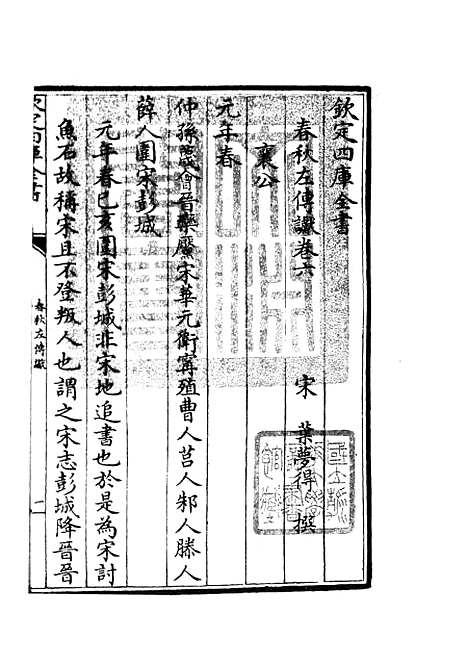 欽定四庫全書
春秋左傳讞卷六
宋 葉夢得 撰
襄公
元年春
仲孫蔑會晉欒黶宋華元衛甯殖曹人莒人邾人滕人
薛人圍宋彭城
元年春己亥圍宋彭城非宋地追書也於是為宋討
魚石故稱宋且不登叛人也謂之宋志彭城降晉晉
欽定四庫全書
春秋左傳讞
一